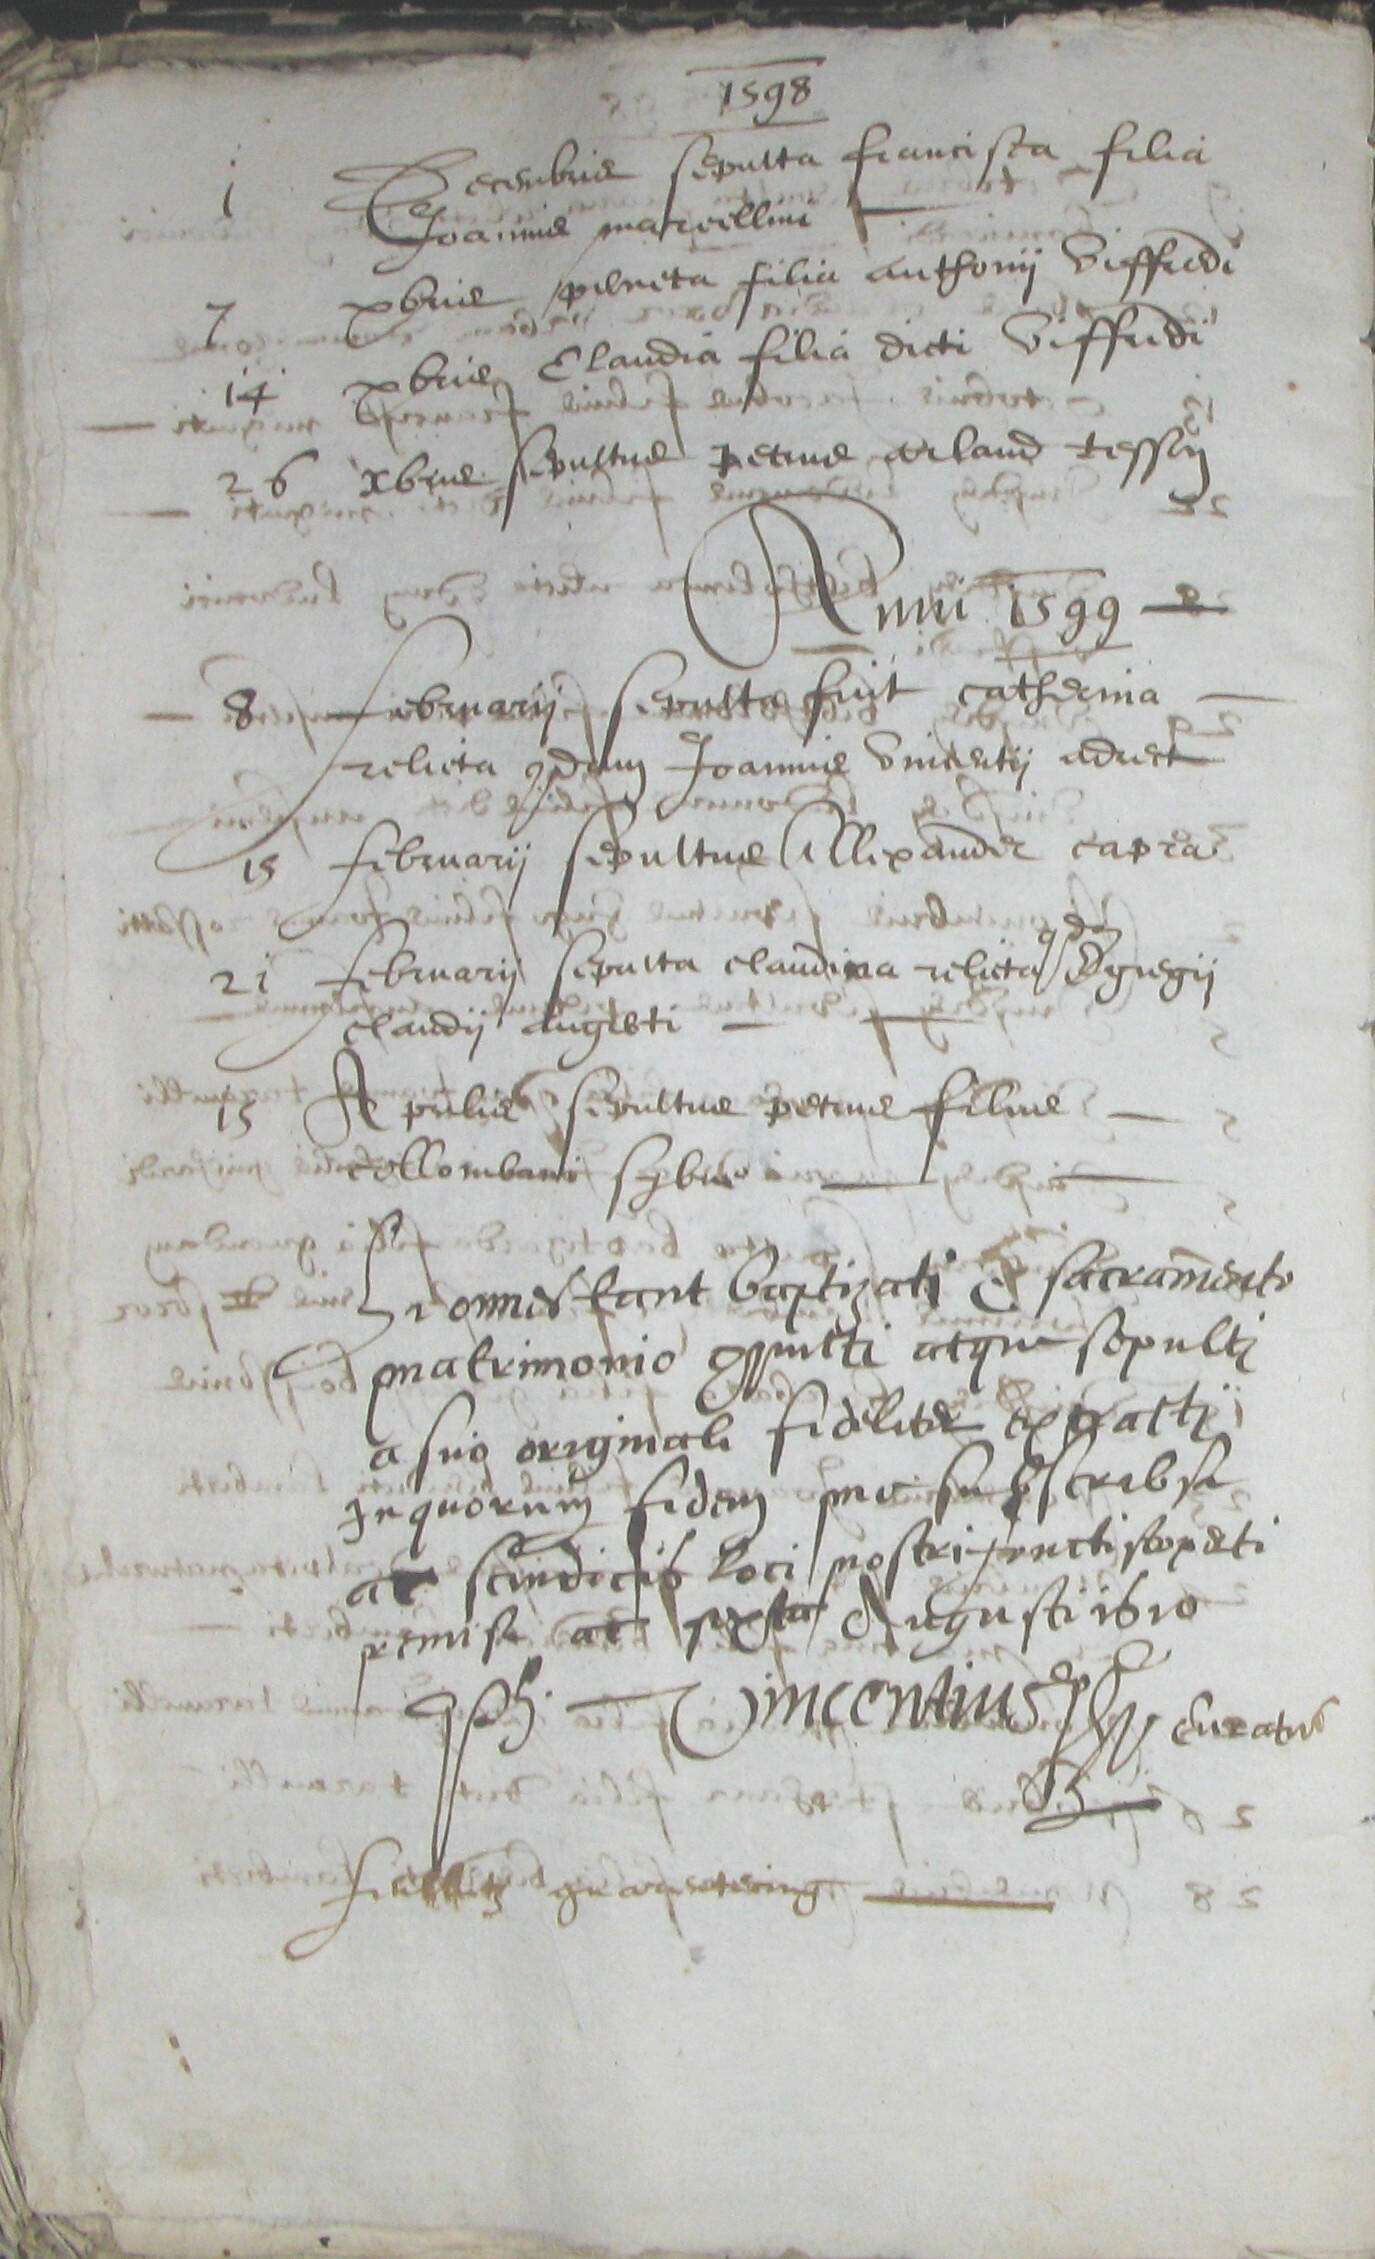 1598
1 Decembris sepulta francisca filia
Joannis marcellini
7 xbris perneta filia anthonij Viffredi
14 xbris Claudia filia dicti Viffredi
26 xbris sepultus petrus arland
Anni 1599
8 februarij sepulta fuit catherina
relicta qdam Joannis Vincentij
15 februarij sepultus Allexander capra
21 februarij sepulta claudina relicta qdam Egregij
claudij augusti
15 Aprilis sepultus petrus filius
collombani
omnes baptizati & sacramento
matrimonio atque sepulti
a suo originali fideliter extracti
In quorum fidem me subscribsi
ac scindicis loci nostri
remisi ac sexta Augusti 1610
Vincentius curatus